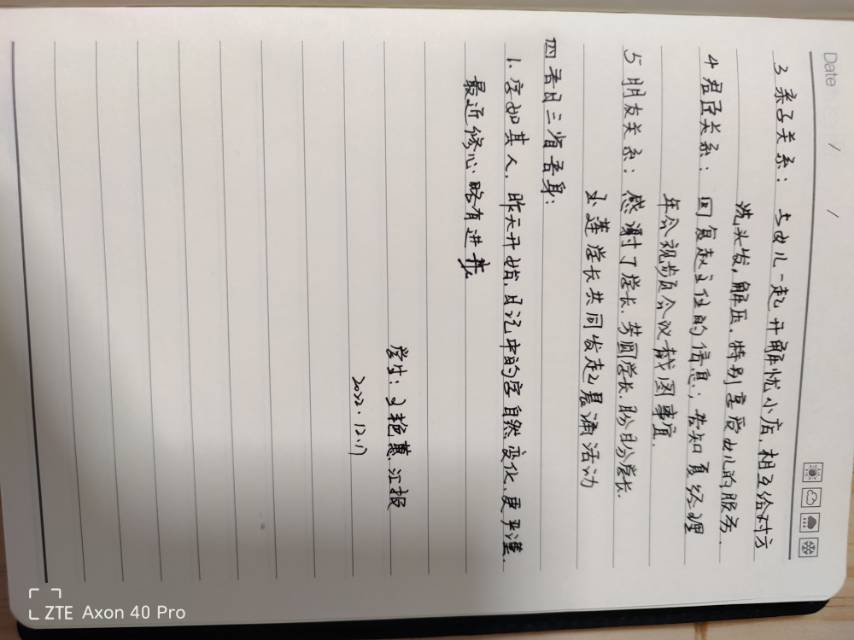 Date / /
3 亲子关系：与女儿一起开解忧小店，相互给对方
洗头发，解压，特别享受女儿的服务．
4 君臣关系：回复赵主任的信息；告知夏经理
年会视频会议截图事宜．
5 朋友关系：感谢丁学长．芳圆学长．月学长．
玉莲学长共同发起晨诵活动
四 吾日三省吾身：
1．字如其人．昨天开始，日记中的字自然变化，更严谨．
最近修心略有进步．
学生：艳蕙 汇报
2022．12．17
ZTE Axon 40 Pro